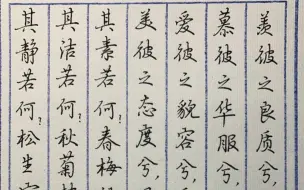 羡彼之良质兮，
慕彼之华服兮，
爱彼之貌容兮，
美彼之态度兮，
其素若何？春梅
其洁若何？秋菊
其静若何？松生